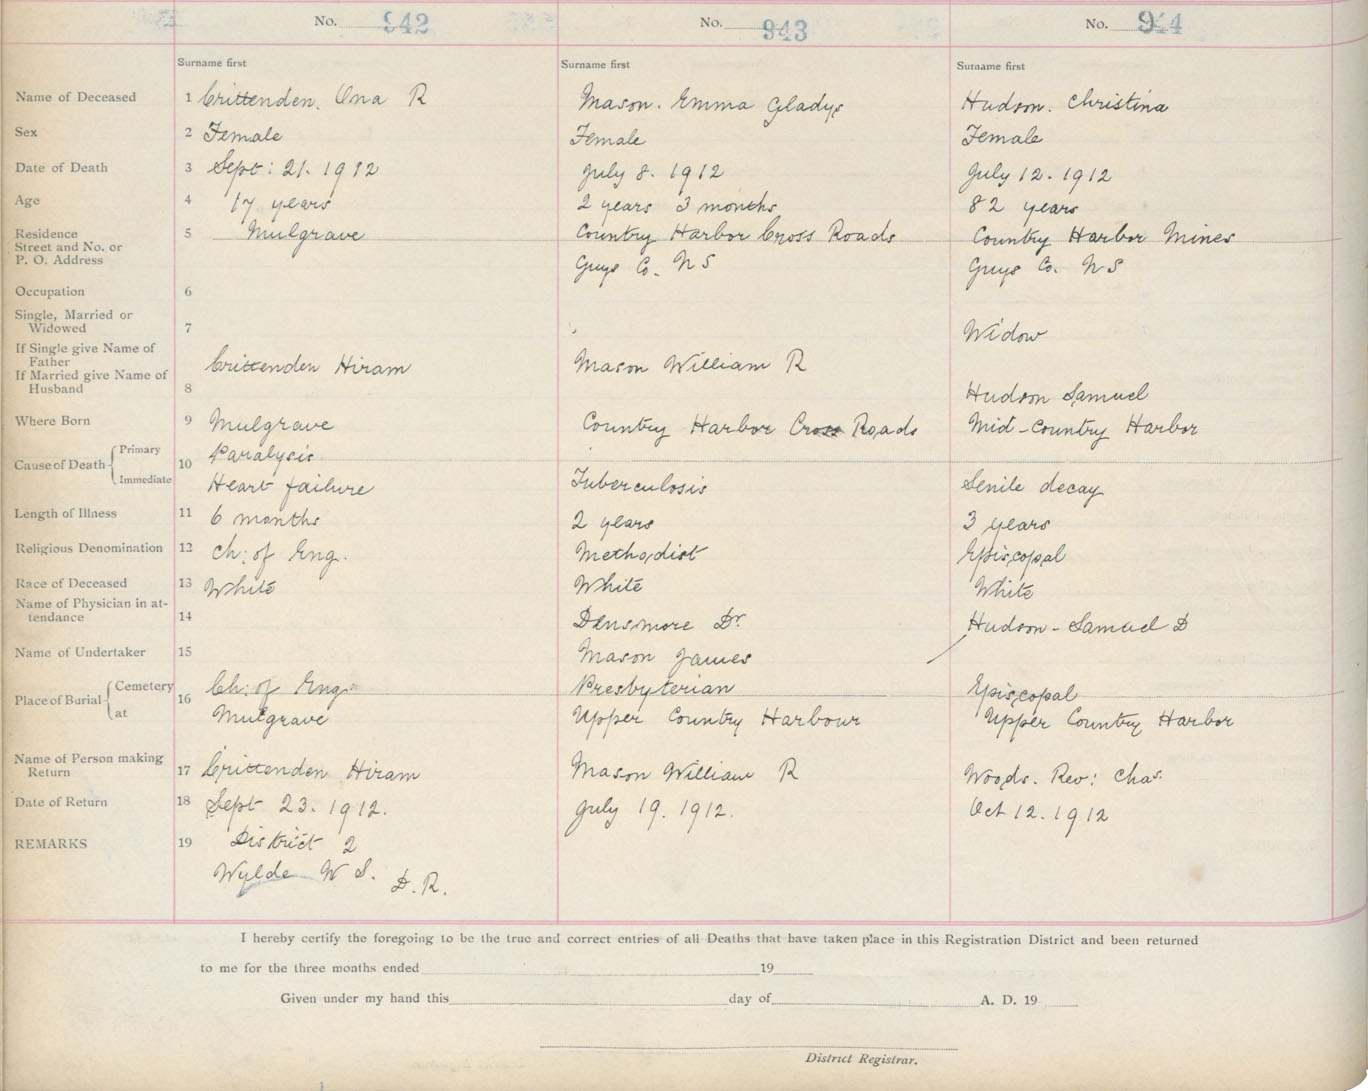 No. 942 No. 943 No. 944
Surname first Surname first Surname first
Name of Deceased 1 Crittenden. Ona R Mason. Emma Gladys Hudson. Christina
Sex 2 Female Female Female
Date of Death 3 Sept: 21. 1912 July 8. 1912 July 12. 1912
Age 4 17 years 2 years 3 months 82 years
Residence 5 Mulgrave Country Harbor Cross Roads Country Harbor Mines
Street and No. or
P. O. Address Guys Co. N S Guys Co. N S
Occupation 6
Single, Married or
Widowed 7 Widow
If Single give Name of
Father Crittenden Hiram Mason William R
If Married give Name of
Husband 8 Hudson Samuel
Where Born 9 Mulgrave Country Harbor Cross Roads Mid-Country Harbor
Cause of Death Primary 10 Paralysis
Immediate Heart failure Tuberculosis Senile decay
Length of Illness 11 6 months 2 years 3 years
Religious Denomination 12 Ch: of Eng. Methodist Episcopal
Race of Deceased 13 White White White
Name of Physician in at-
tendance 14 Densmore Dr. Hudson - Samuel D
Name of Undertaker 15 Mason James
Place of Burial Cemetery 16 Ch: of Eng. Presbyterian Episcopal
at Mulgrave Upper Country Harbour Upper Country Harbor
Name of Person making
Return 17 Crittenden Hiram Mason William R Woods. Rev: Chas.
Date of Return 18 Sept 23. 1912. July 19. 1912. Oct 12. 1912
REMARKS 19 District 2
Wylde W S. D.R.
I hereby certify the foregoing to be the true and correct entries of all Deaths that have taken place in this Registration District and been returned
to me for the three months ended 19
Given under my hand this day of A. D. 19
District Registrar.